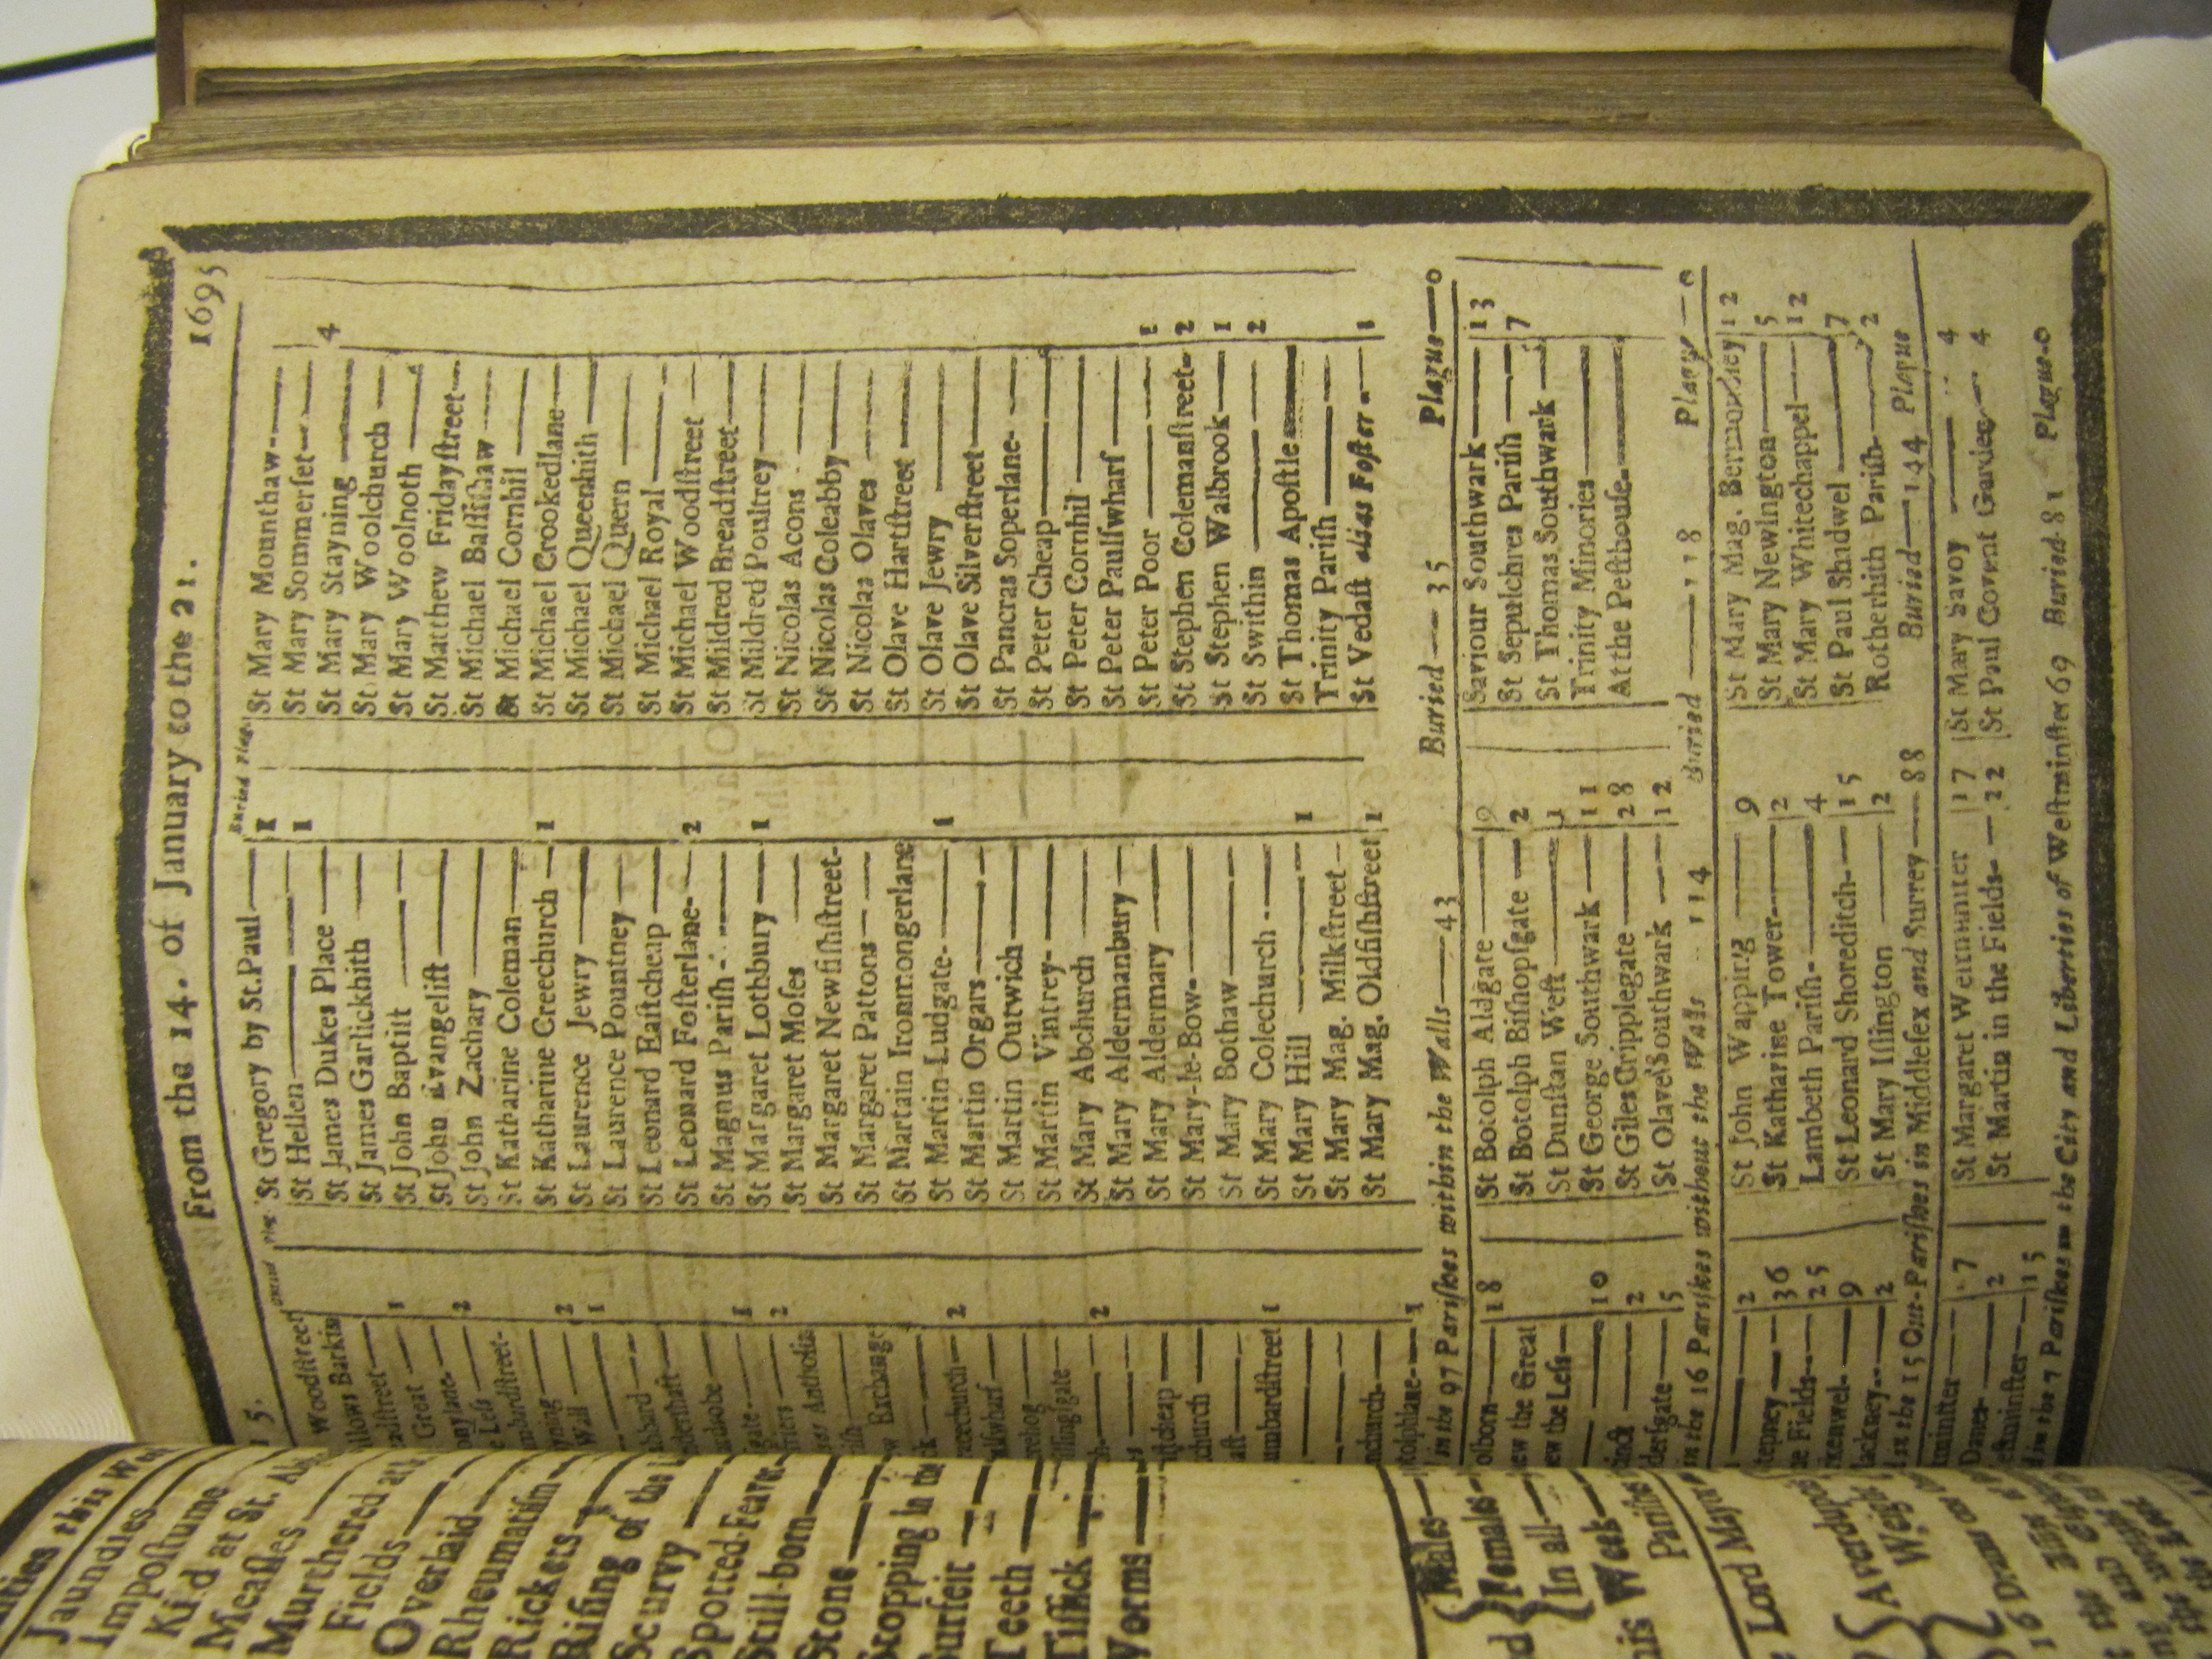 From the 14. of January to the 21.
1695
15.
Buried Plag.
Woodſtreet
llows Barkin
adſtreet— 1
Great —
onylane- 2
e Leſs —
mbardſtreet-
rning — 2
Wall — 1
ſhard —
derſhaft —
ardrobe —
gate — 1
friers — 2
Antholin
riſh —
w Exchange
k —
racechurch— 2
lſwharf—
rehog —
llingſgate —
h— 2
ſtcheap —
church —
aft —
umbardſtreet 1
nchurch—
totolphlane— 1
St Gregory by St. Paul— 1
St Hellen— 1
St James Dukes Place —
St James Garlickhith —
St John Baptiſt —
St John Evangeliſt —
St John Zachary —
St Katharine Coleman—
St Katharine Creechurch — 1
St Laurence Jewry —
St Laurence Pountney —
St Leonard Eaſtcheap —
St Leonard Foſterlane- 2
St Magnus Pariſh —
St Margaret Lothbury — 1
St Margaret Moſes —
St Margaret Newfiſhſtreet-
St Margaret Pattons —
St Martain Ironmongerlane
St Martin Ludgate- 1
St Martin Orgars —
St Martin Outwich —
St Martin Vintrey-
St Mary Abchurch —
St Mary Aldermanbury —
St Mary Aldermary —
St Mary-le-Bow-
St Mary Bothaw —
St Mary Colechurch —
St Mary Hill — 1
St Mary Mag. Milkſtreet—
St Mary Mag. Oldfiſhſtreet 1
St Mary Mounthaw-
St Mary Sommerſet— 4
St Mary Stayning —
St Mary Woolchurch —
St Mary Woolnoth —
St Matthew Fridayſtreet—
St Michael Baſſiſhaw —
St Michael Cornhil —
St Michael Crookedlane—
St Michael Queenhith —
St Michael Quern —
St Michael Royal —
St Michael Woodſtreet —
St Mildred Breadſtreet—
St Mildred Poultrey —
St Nicolas Acons —
St Nicolas Coleabby —
St Nicolas Olaves —
St Olave Hartſtreet —
St Olave Jewry —
St Olave Silverſtreet—
St Pancras Soperlane-
St Peter Cheap—
St Peter Cornhil —
St Peter Paulſwharf—
St Peter Poor — 1
St Stephen Colemanſtreet- 2
St Stephen Walbrook— 1
St Swithin — 2
St Thomas Apoſtle
Trinity Pariſh —
St Vedaſt alias Foſter - 1
in the 97 Pariſhes within the Walls—43 Buried — 35 Plague—0
olborn— 18
ew the Great
ew the Leſs—
— 10
2
derſgate— 5
St Botolph Aldgate — 9
St Botolph Biſhopſgate — 2
St Dunſtan Weſt— 1
St George Southwark — 11
St Giles Cripplegate — 28
St Olave Southwark — 12
Saviour Southwark— 13
St Sepulchres Pariſh — 7
St Thomas Southwark —
Trinity Minories —
At the Peſthouſe-
in the 16 Pariſhes without the Walls 114 Buried — 118 Plague — 0
— 2
tepney — 36
e Fields— 25
rkenwel- 9
lackney-- 2
St John Wapping — 9
St Katharine Tower— 2
Lambeth Pariſh- — 4
St Leonard Shoreditch— 15
St Mary Iſlington — 2
St Mary Mag. Bermondſey 12
St Mary Newington— 5
St Mary Whitechappel— 12
St Paul Shadwel — 7
Rotherhith Pariſh— 2
in the 15 Out-Pariſhes in Middleſex and Surrey — 88 Buried—144 Plague
tminſter— 7
Danes— 2
eſtminſter— 15
St Margaret Weſtminſter 17
St Martin in the Fields- — 22
St Mary Savoy — 4
St Paul Covent Garden— 4
in the 7 Pariſhes in the City and Liberties of Weſtminſter 69 Buried-81 Plague-0
this We
Jaundies
Impoſtume
Kil'd at St.
Meaſles
Murthered at
Fields
Overlaid
Rheumatiſm
Rickets
Riſing of the
Scurvy
Spotted Feaver-
Still-born—
Stone—
Stopping in the
Surfeit
Teeth
Tiſſick
Worms
Males—
Females—
In all—
this Week—
Pariſhes
Lord Mayor
Averdupois
Weight
16 Drams